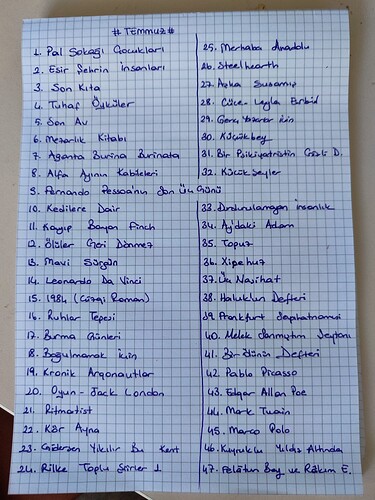 # TEMMUZ #
1. Pal Sokağı Çocukları
2. Esir Şehrin İnsanları
3. Son Kıta
4. Tuhaf Öyküler
5. Son Av
6. Mezarlık Kitabı
7. Aganta Burina Burinata
8. Alfa Ayının Kabileleri
9. Fernando Pessoa'nın Son Üç Günü
10. Kedilere Dair
11. Kayıp Bayan Finch
12. Ölüler Geri Dönmez
13. Mavi Sürgün
14. Leonardo Da Vinci
15. 1984 (Çizgi Roman)
16. Ruhlar Tepesi
17. Burma Günleri
18. Boğulmamak için
19. Kronik Argonautlar
20. Oyun - Jack London
21. Ritmatist
22. Kör Ayna
23. Gidersen Yıkılır Bu Kent
24. Rilke Toplu Şiirler 1
25. Merhaba Anadolu
26. Steelhearth
27. Aşka Susamış
28. Cüce - Leyla Erbil
29. Genç Yazarlar için
30. Küçükbey
31. Bir Psikiyatristin Gizli D.
32. Küçük Şeyler
33. Durdurulamayan insanlık
34. Ay'daki Adam
35. Topuz
36. Xipehuz
37. Üç Nasihat
38. Haluk'un Defteri
39. Frankfurt Seyahatnamesi
40. Melek Sanmıştım Şeytanı
41. Bir Ölünün Defteri
42. Pablo Picasso
43. Edgar Allan Poe
44. Mark Twain
45. Marco Polo
46. Kuyruklu Yıldız Altında
47. Felâtun Bey ve Râkım E.